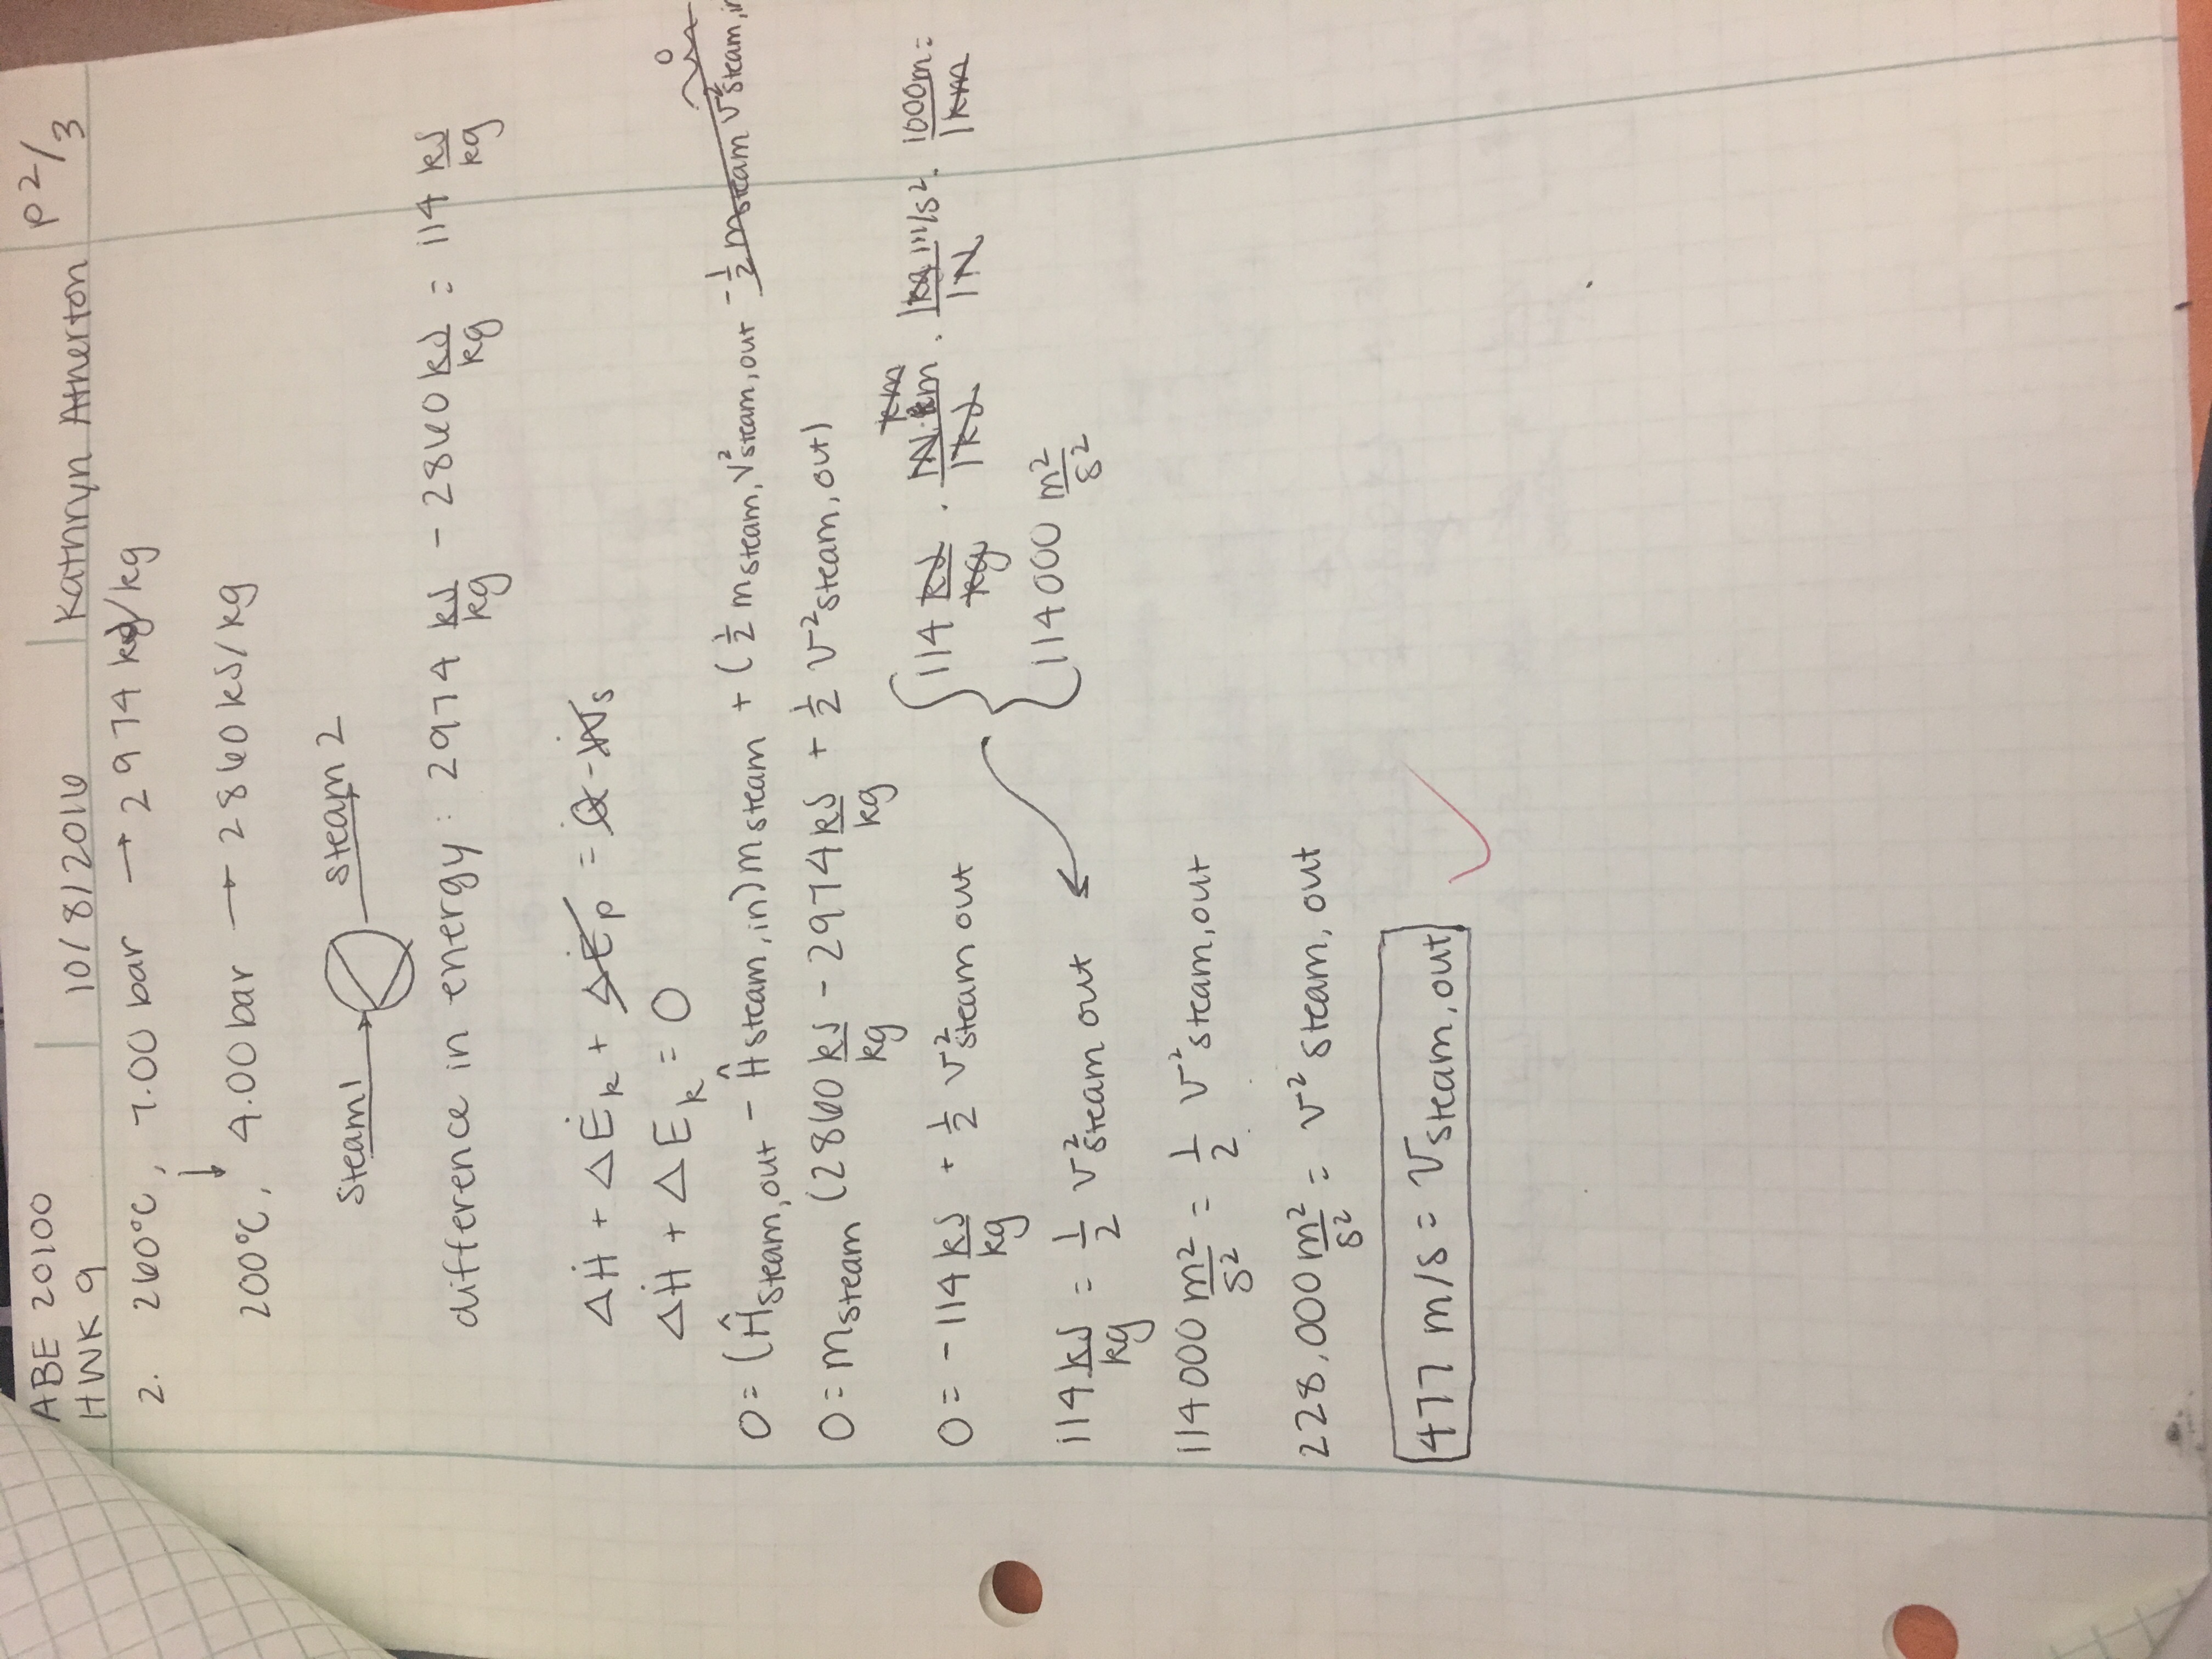 ABE 20100
HWK 9
10/8/2016
Kathryn Atherton
p 2/3
2. 260°C, 7.00 bar → 2974 kJ/kg
↓
200°C, 4.00 bar → 2860 kJ/kg
Steam 1
steam 2
difference in energy: 2974 kJ/kg - 2860 kJ/kg = 114 kJ/kg
ΔḢ + ΔĖk + ΔĖp = Q̇ - Ẇs
ΔḢ + ΔEk = 0
0
0 = (Ĥsteam, out - Ĥsteam, in) msteam + (1/2 msteam, v²steam, out - 1/2 msteam v²steam, in
0 = msteam (2860 kJ/kg - 2974 kJ/kg + 1/2 v²steam, out)
0 = -114 kJ/kg + 1/2 v²steam out
km
114 kJ/kg · N·km/1kJ · 1kg m/s²/1N · 1000m/1km =
114000 m²/s²
114 kJ/kg = 1/2 v²steam out
114000 m²/s² = 1/2 v²steam, out
228,000 m²/s² = v² steam, out
477 m/s = vsteam, out